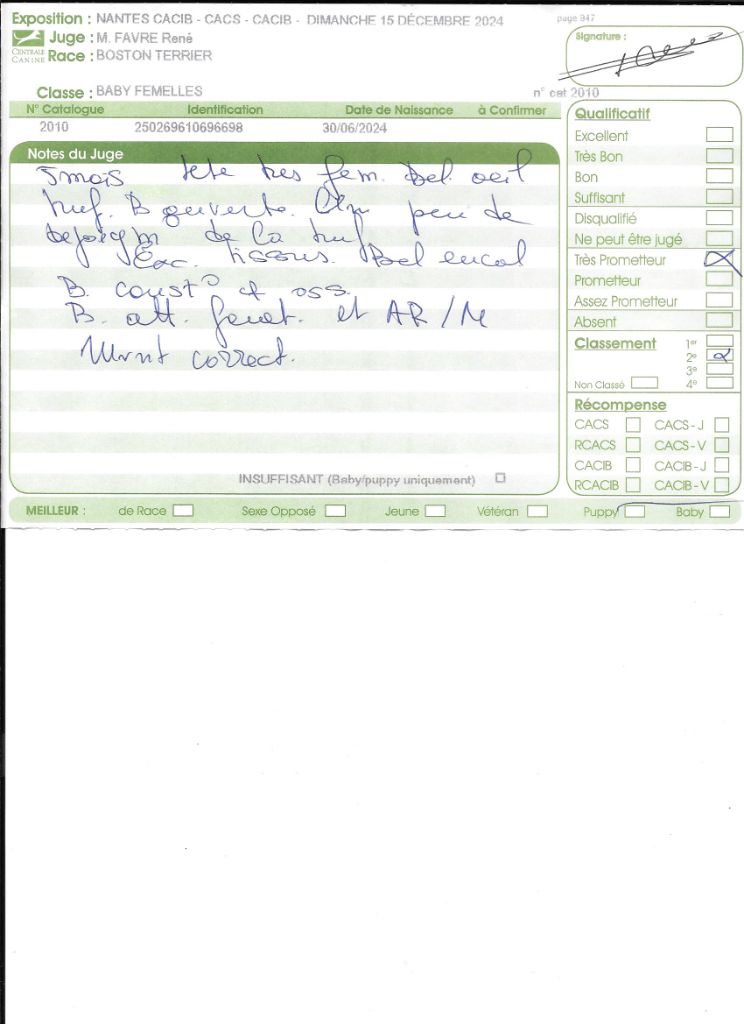 Exposition : NANTES CACIB - CACS - CACIB - DIMANCHE 15 DÉCEMBRE 2024
page 847
Juge : M. FAVRE René
CENTRALE CANINE
Race : BOSTON TERRIER
Signature :
Classe : BABY FEMELLES
n° cat 2010
N° Catalogue Identification Date de Naissance à Confirmer
2010 250269610696698 30/06/2024
Notes du Juge
5 mois tete tres fem. Bel oeil
truf. B ouverte. Un peu de
de la truf
Exc. tissus. Bel encol
B. const° & oss.
B. att. fouet. et AR/M
Mvmt correct.
INSUFFISANT (Baby/puppy uniquement)
Qualificatif
Excellent
Très Bon
Bon
Suffisant
Disqualifié
Ne peut être jugé
Très Prometteur X
Prometteur
Assez Prometteur
Absent
Classement 1er
2e 2
3e
Non Classé 4e
Récompense
CACS CACS - J
RCACS CACS - V
CACIB CACIB - J
RCACIB CACIB - V
MEILLEUR : de Race Sexe Opposé Jeune Vétéran Puppy Baby